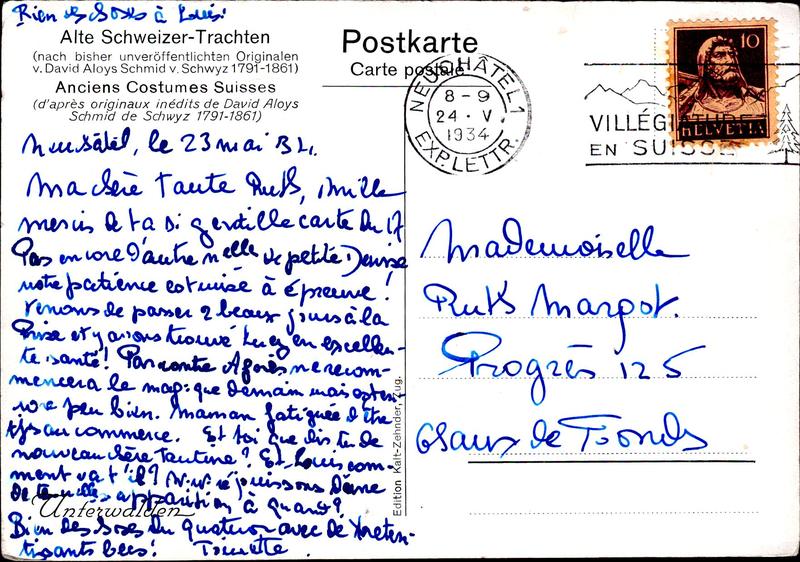 Bien des choses à Louis.
Alte Schweizer-Trachten
(nach bisher unveröffentlichten Originalen
v. David Aloys Schmid v. Schwyz 1791-1861)
Anciens Costumes Suisses
(d'après originaux inédits de David Aloys
Schmid de Schwyz 1791-1861)
Postkarte
Carte postale
NEUCHÂTEL 1
8-9
24. V.
1934
EXP. LETTR.
VILLÉGIATURE
EN SUISSE
10
HELVETIA
Neuchâtel, le 23 mai 34.
Ma chère Tante Ruth, mille
mercis de ta si gentille carte du 17
Pas encore d'autre nelle de petite Denise
notre patience est mise à épreuve!
Venons de passer 2 beaux jours à la
Prise et y avons trouvé Lucy en excellen-
te santé! Par contre Agnès ne recom-
mencera le mag. que demain mais est en-
core peu bien. Maman fatiguée d'être
tjs au commerce. Et toi que dis tu de
nouveau chère Tantine? Et Louis com-
ment va t'il? réjouissons
de apparition à quand?
Bien des choses du quatuor avec de
bees! Toinette.
Unterwalden
Edition Kalt-Zehnder, Zug.
Mademoiselle
Ruth Margot.
Progrès 125
Chaux de Fonds